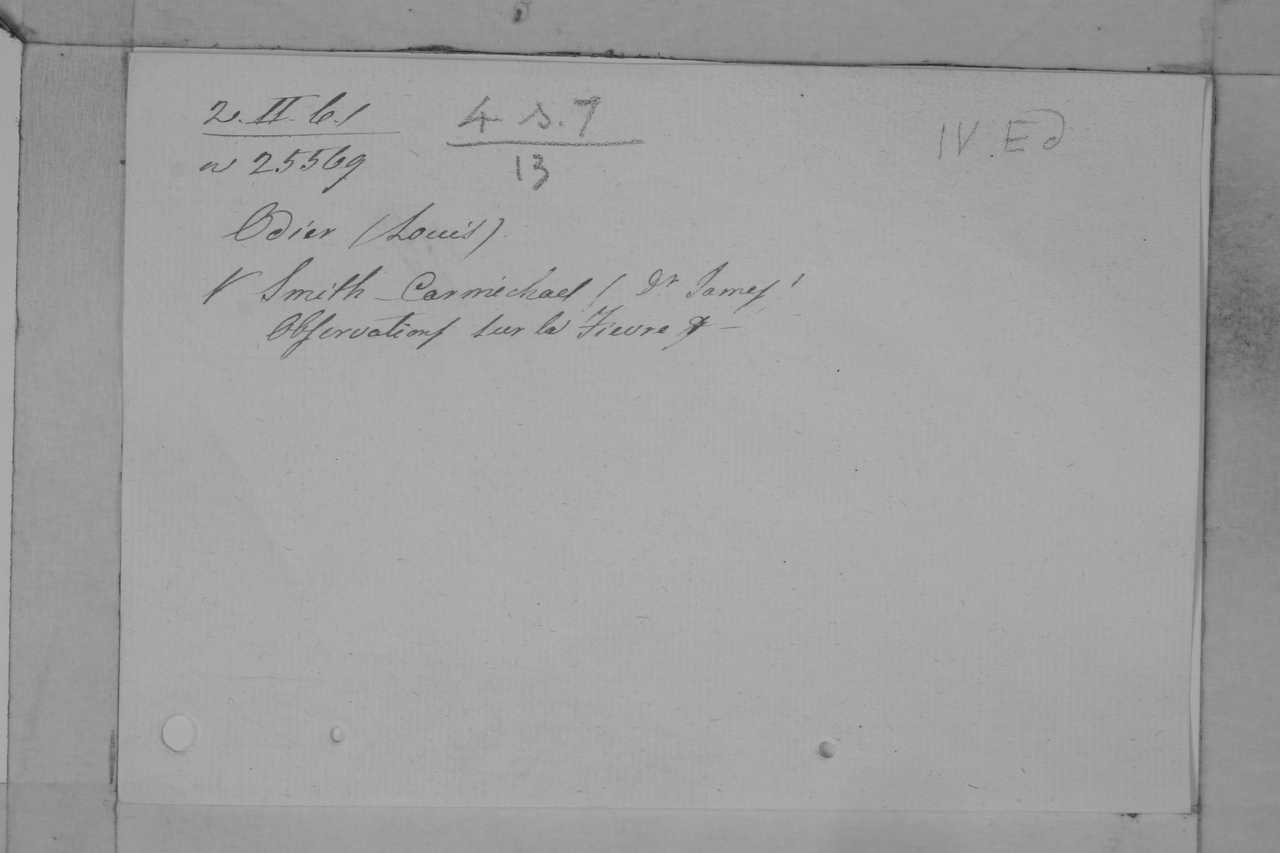 2. II. 6.1
n 25569
4 S. 7
13
IV. Ed
Odier (Louis)
V Smith-Carmichael (Dr James)
Observations sur la Fievre &-